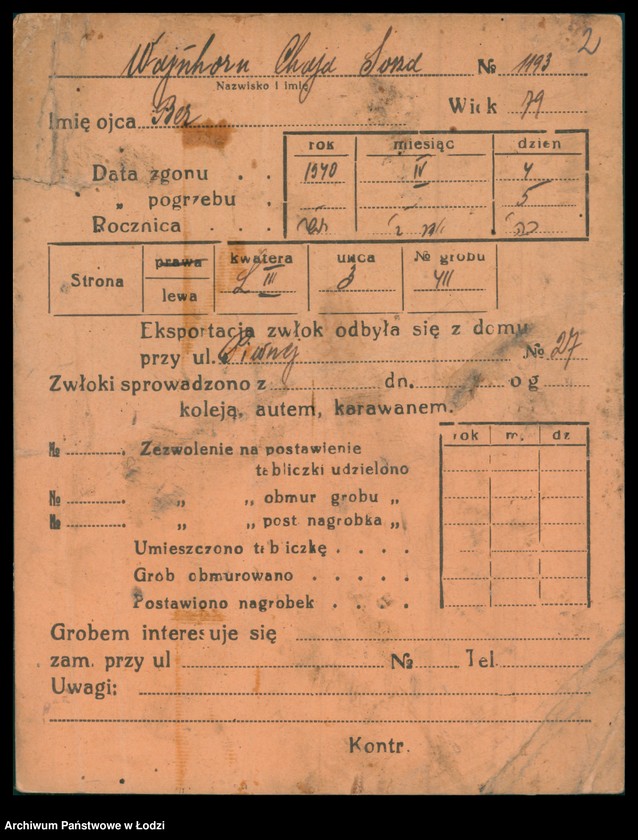 2
Wajnhorn Chaja Sora № 1193
Nazwisko i imię
Imię ojca Ber Wiek 79
rok miesiąc dzien
Data zgonu . . 1940 IV 4
„ pogrzebu . 5
Rocznica . . .
Strona prawa lewa kwatera L III ulica 3 № grobu
Eksportacja zwłok odbyła się z domu
przy ul. Piwnej № 27
Zwłoki sprowadzono z dn. o g
koleją, autem, karawanem.
rok m. dz
№ Zezwolenie na postawienie
tabliczki udzielono
№ „ „ obmur grobu „
№ „ „ post nagrobka „
Umieszczono tabliczkę . . . .
Grob obmurowano . . . . .
Postawiono nagrobek . . . .
Grobem interesuje się
zam. przy ul № Tel.
Uwagi:
Kontr.
Archiwum Państwowe w Łodzi